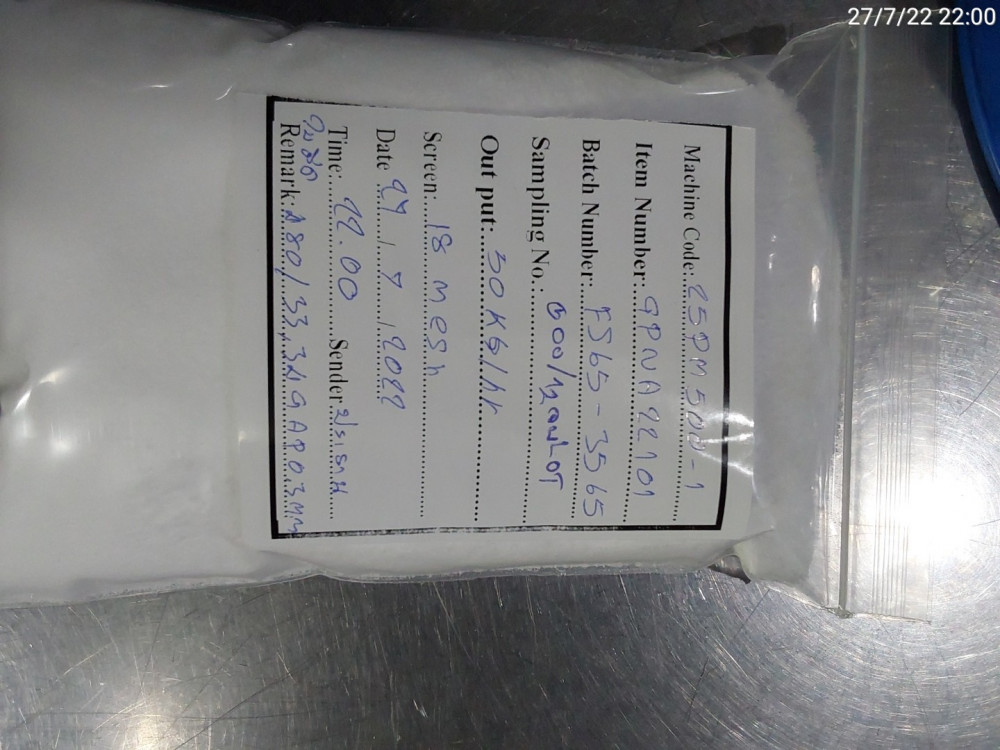 27/7/22 22:00
Machine Code: 25PM500-1
Item Number: GPNA22101
Batch Number: FS65-3565
Sampling No.:
Out put: 30 KG/hr
Screen: 18 mesh
Date 27 / 7 / 2022
Time: 22.00 Sender: ประธาน
ใบมีด
Remark: 180/33, 32 GAP 0.3 MM